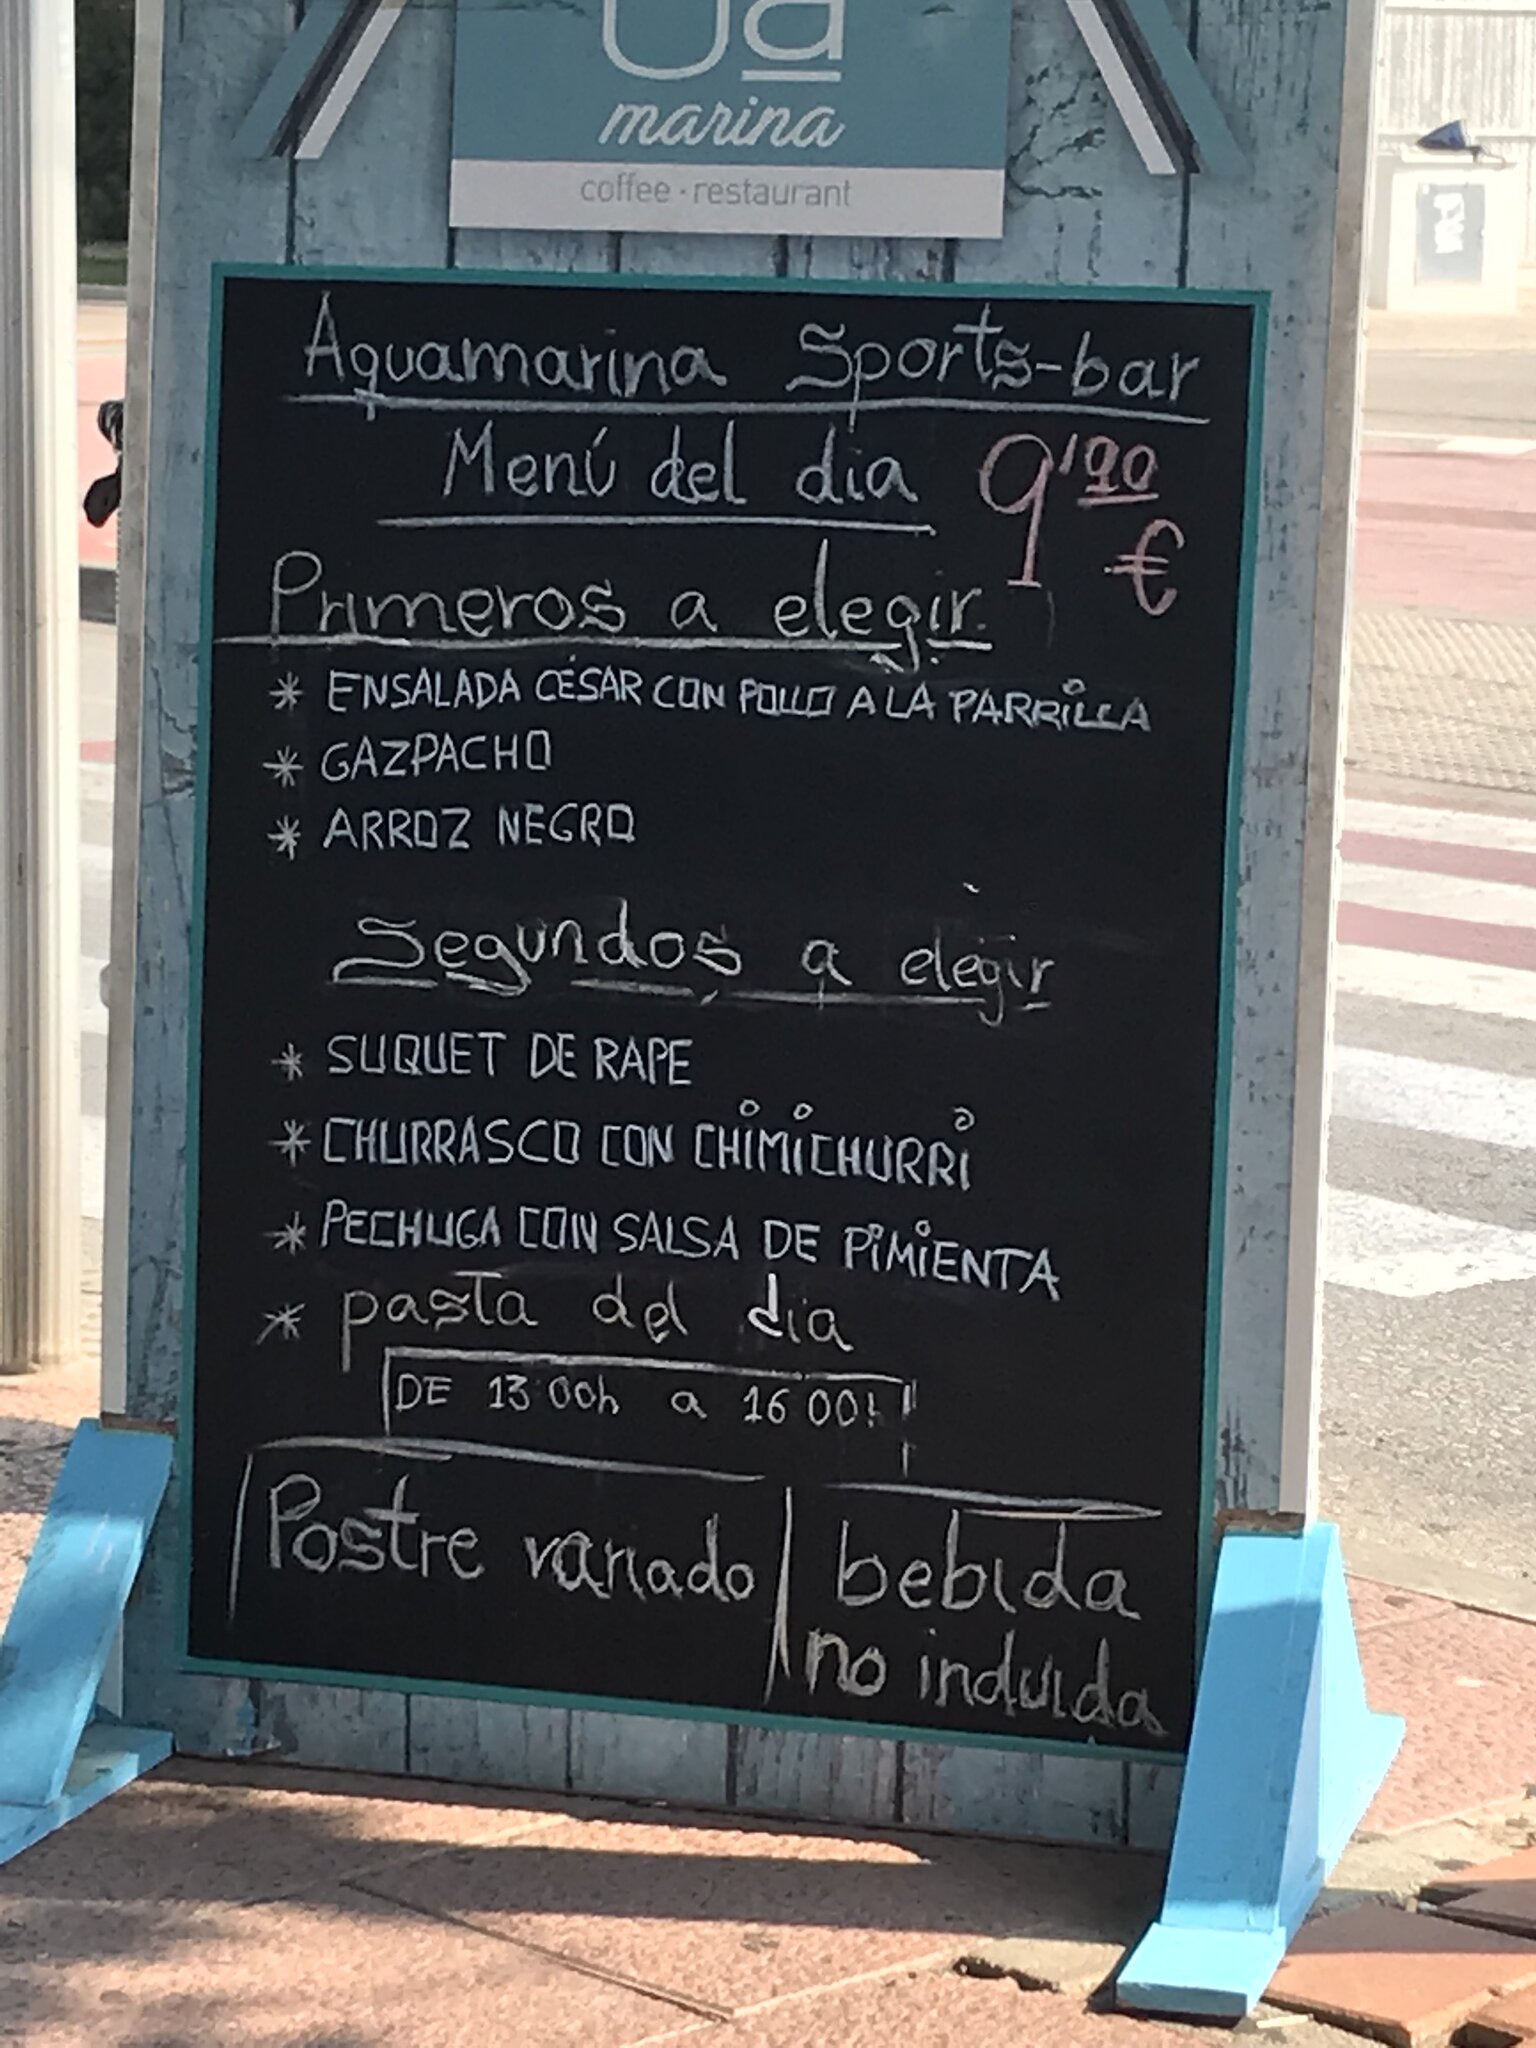 ua
marina
coffee · restaurant
Aquamarina Sports-bar
Menú del dia 9'90 €
Primeros a elegir.
* ENSALADA CÉSAR CON POLLO A LA PARRILLA
* GAZPACHO
* ARROZ NEGRO
Segundos a elegir
* SUQUET DE RAPE
* CHURRASCO CON CHIMICHURRI
* PECHUGA CON SALSA DE PIMIENTA
* pasta del dia
DE 13:00h a 16 00!
Postre variado
bebida
no incluida